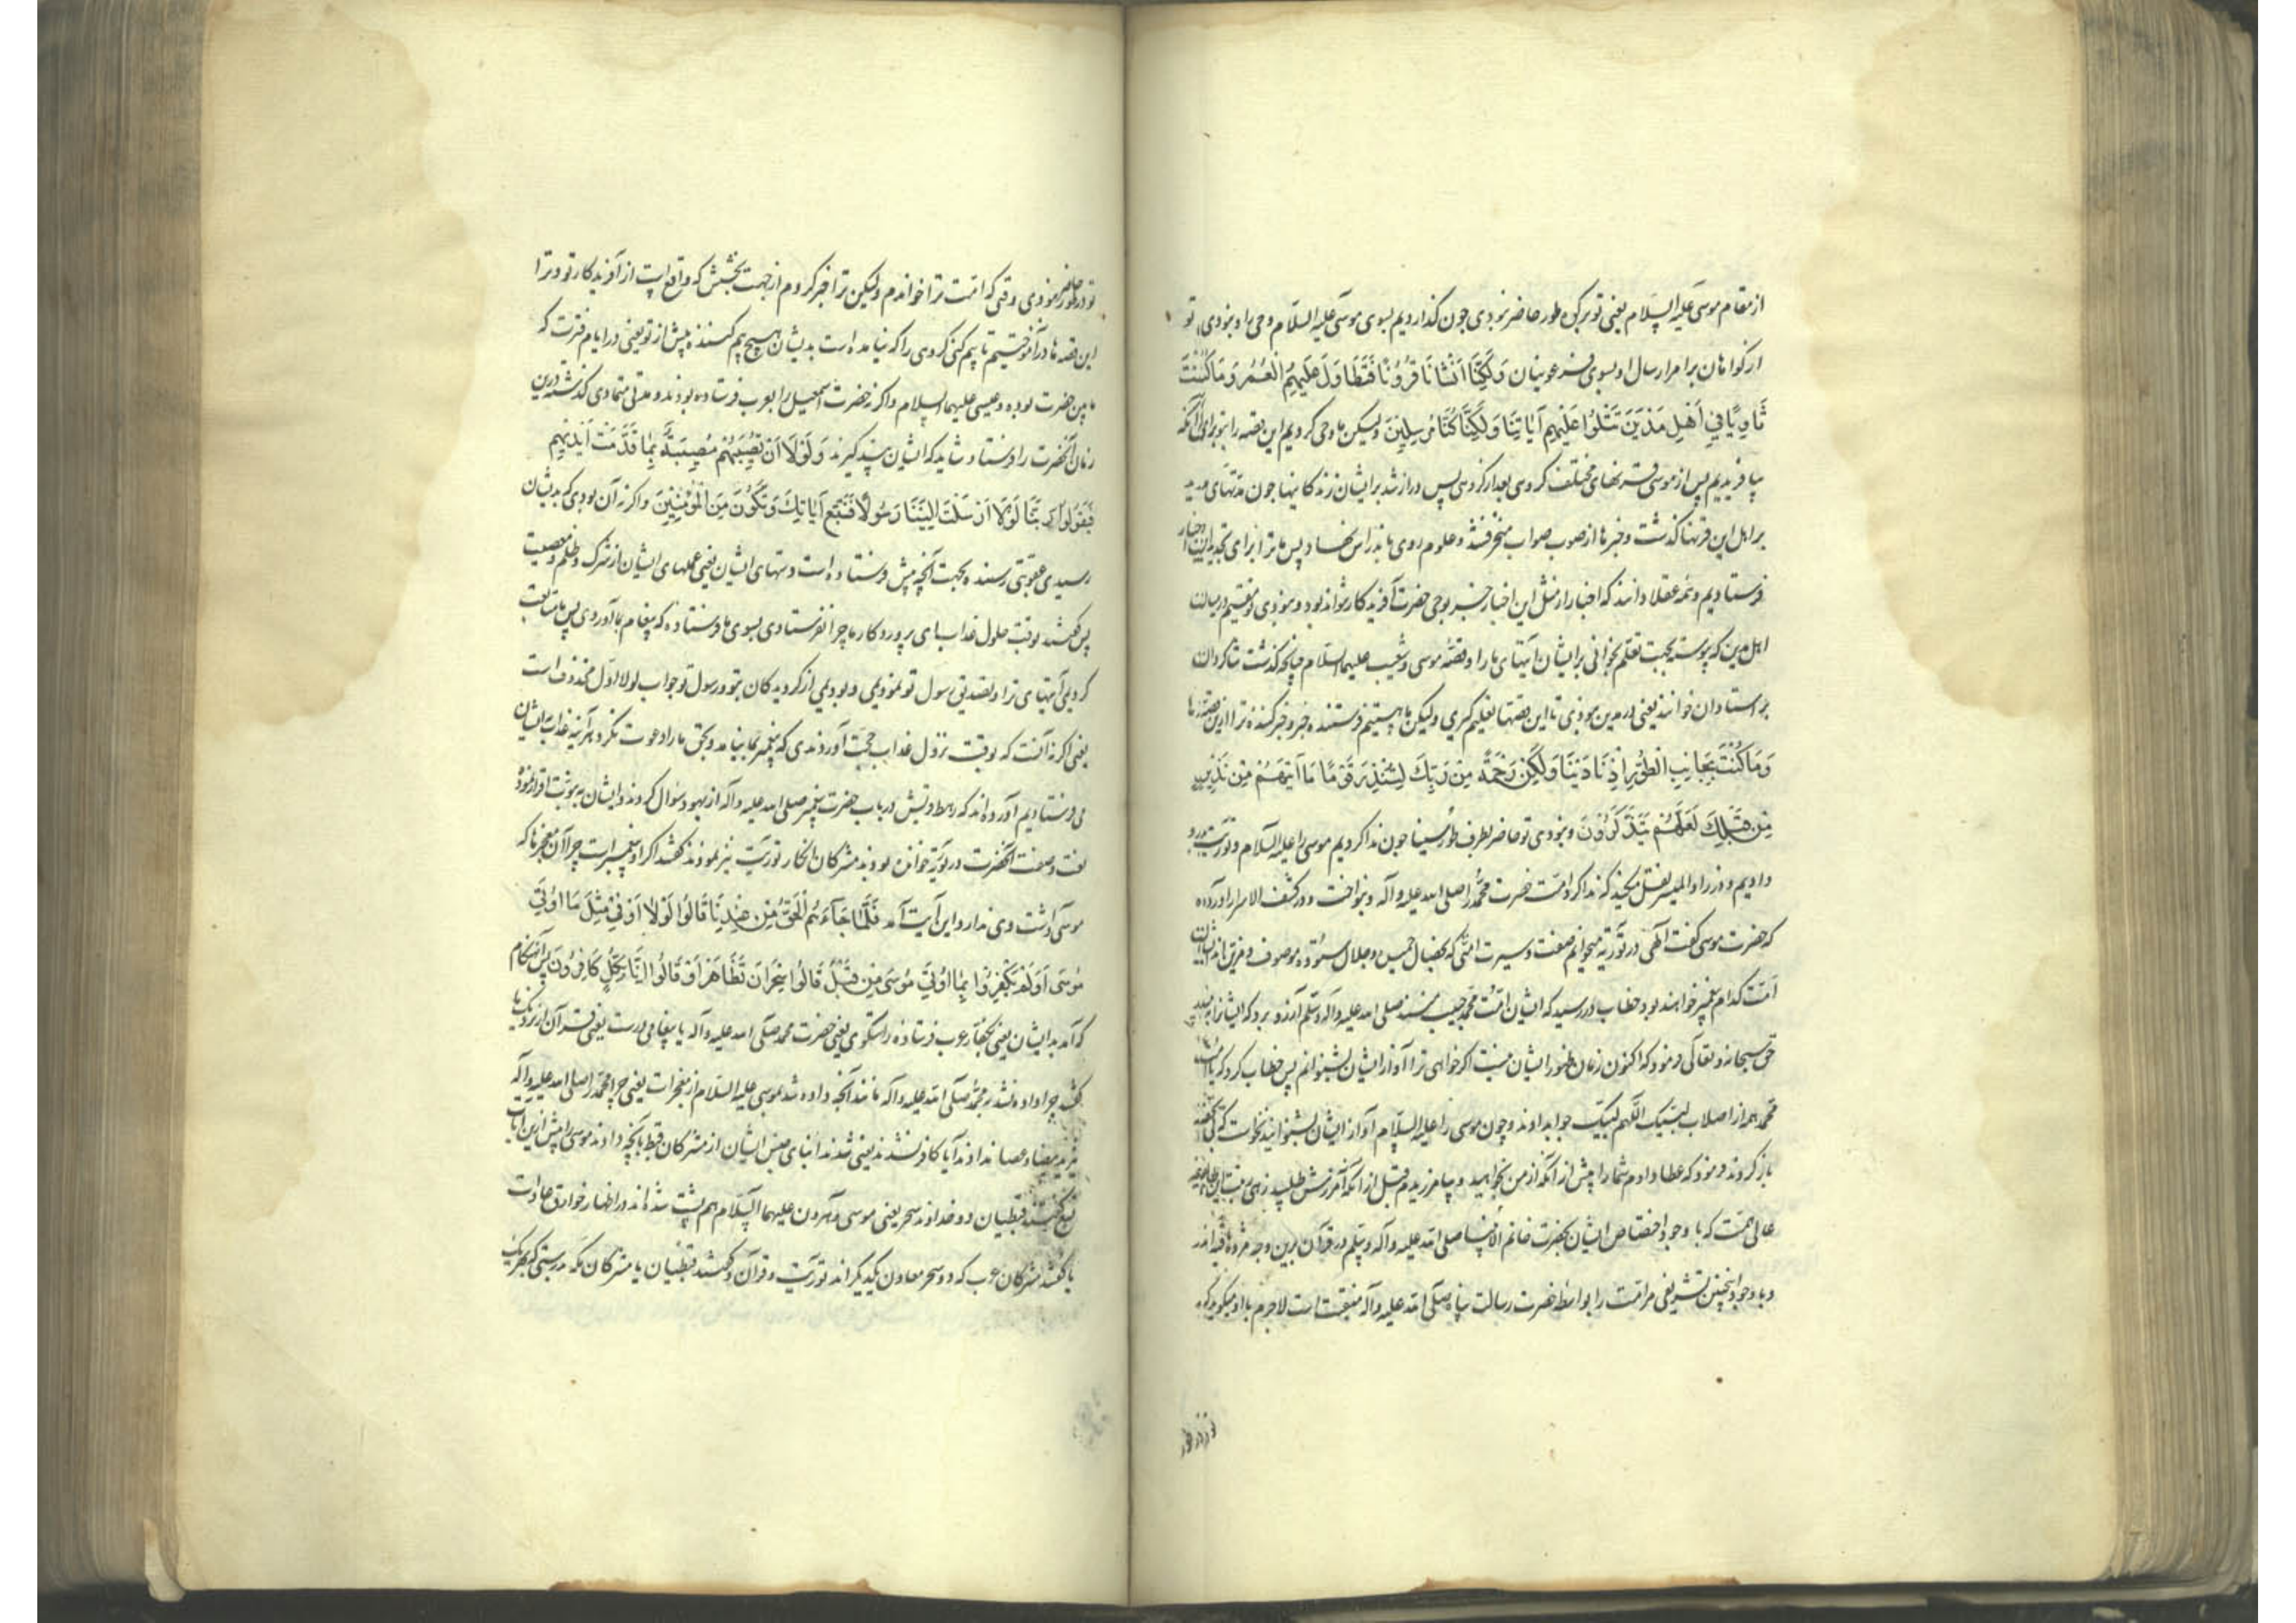 از مقام موسی علیه السلام یعنی تو برکن طور حاضر نبودی چون گذاردیم بسوی موسی علیه السلام وحی را و نبودی تو
از گواهان بر امر ارسال او بسوی فرعونیان وَلَكِنَّا اَنْشَأْنَا قُرُونًا فَتَطَاوَلَ عَلَيْهِمُ الْعُمُرُ وَمَا كُنْتَ
ثَاوِيًا فِي اَهْلِ مَدْيَنَ تَتْلُوا عَلَيْهِمْ آيَاتِنَا وَلَكِنَّا كُنَّا مُرْسِلِينَ ولیکن ما وحی کردیم این قصه را بتو برای آنکه
بیافریدیم پس از موسی قرنهای مختلف گروهی بعد از گروهی پس دراز شد بر ایشان زندگانیها چون مدتهای
بر اهل این قرنها گذشت و خبرها از صوب صواب منحرف شد و علوم روی باندراس نهاد پس ما ترا برای تجدید این اخبار
فرستادیم و همه عقلا دانند که اخبار از مثل این اخبار جز بوحی حضرت آفریدگار نتواند بود و نبودی تو مقیم در میان
اهل مدین که پیوسته بجهت تعلم بخوانی بر ایشان آیتهای ما را و قصه موسی و شعیب علیهما السلام چنانچه گذشت شاگردان
بر استادان خوانند یعنی در مدین نبودی تا این قصها تعلیم گیری ولیکن ما هستیم فرستنده خبر و خبر کننده ترا از این قصه ها
وَمَا كُنْتَ بِجَانِبِ الطُّورِ اِذْ نَادَيْنَا وَلَكِنْ رَحْمَةً مِنْ رَبِّكَ لِتُنْذِرَ قَوْمًا مَا اَتَيهُمْ مِنْ نَذِيرٍ
مِنْ قَبْلِكَ لَعَلَّهُمْ يَتَذَكَّرُونَ و نبودی تو حاضر بطرف طور سینا چون ندا کردیم موسی را علیه السلام و توریت بدو
دادیم و در زاد المسیر نقل میکند که ندا کرد امت حضرت محمد را صلی الله علیه و آله و بنواخت و در کشف الاسرار آورده
که حضرت موسی گفت الهی در توریة میخوانم صفت و سیرت امتی که بخصال حمیده و جلال ستوده موصوف و مزین اند ایشان
امت کدام پیغمبر خواهند بود خطاب در رسید که ایشان امت محمد حبیب منند صلی الله علیه و آله و سلم آرزو برد که ایشانرا به بیند
حق سبحانه و تعالی فرمود که اکنون زمان ظهور ایشان نیست اگر خواهی ترا آواز ایشان بشنوانم پس خطاب کرد که یا امت
محمد همه از اصلاب لبیک اللهم لبیک جواب دادند و چون موسی را علیه السلام آواز ایشان بشنوانید نخواست که بی تحفه
باز گردند فرمود که عطا دادم شما را پیش از آنکه از من بخواهید و بیامرزیدم قبل از انکه آمرزش طلبید زهی
عالی همت که با وجود اختصاص ایشان بحضرت خاتم الانبیا صلی الله علیه و آله و سلم در قرآن برین وجه مژده یافته اند
و با وجود اینچنین تشریفی مر امت را بواسطه حضرت رسالت پناه صلی الله علیه و آله منقبت است لاجرم با او میگوید که
تو در طور حاضر نبودی وقتی که امت ترا خواندم ولیکن ترا خبر کردم از جهت بخشش که واقع است از آفریدگار تو و ترا
این قصه ها در آموختیم تا بیم کنی گروهی را که نیامده است بدیشان هیچ بیم کننده پیش از تو یعنی در ایام فترت که
مابین حضرت بوده و عیسی علیهما السلام و اگر نه حضرت اسمعیل را بعرب فرستاده بودند و مدتی متمادی گذشته درین
زمان آنحضرت را فرستاد شاید که ایشان پند گیرند وَلَوْلَا اَنْ تُصِيبَهُمْ مُصِيبَةٌ بِمَا قَدَّمَتْ اَيْدِيهِمْ
فَيَقُولُوا رَبَّنَا لَوْلَا اَرْسَلْتَ اِلَيْنَا رَسُولًا فَنَتَّبِعَ آيَاتِكَ وَنَكُونَ مِنَ الْمُؤْمِنِينَ و اگر نه آن بودی که بدیشان
رسیدی عقوبتی رسنده بجهت آنچه پیش فرستاده است دستهای ایشان یعنی عملهای ایشان از شرک و ظلم و معصیت
پس گفتند بوقت حلول عذاب ای پروردگار ما چرا نفرستادی بسوی ما فرستاده که پیغام بما آوردی پس ما متابعت
کردیمی آیتهای ترا و تصدیق رسول تو نمودیمی و بودیمی از گرویدگان بتو و رسول تو جواب لولا اول محذوف است
یعنی اگر نه آنست که بوقت نزول عذاب حجت آوردندی که پیغمبر بما نیامد و بحق ما را دعوت نکرد هر آینه عذاب بایشان
می فرستادیم آورده اند که رهط قریش در باب حضرت پیغمبر صلی الله علیه و آله از یهود سئوال کردند و ایشان به نبوت اقرار نموده
نعت و صفت آنحضرت در توریة خوانده بودند مشرکان انکار توریت نیز نمودند گفتند اگر او پیغمبر است چرا آن معجزها که
موسی داشت وی ندارد این آیت آمد فَلَمَّا جَآءَهُمُ الْحَقُّ مِنْ عِنْدِنَا قَالُوا لَوْلَا اُوتِيَ مِثْلَ مَا اُوتِيَ
مُوسَى اَوَلَمْ يَكْفُرُوا بِمَا اُوتِيَ مُوسَى مِنْ قَبْلُ قَالُوا سِحْرَانِ تَظَاهَرَا وَ قَالُوا اِنَّا بِكُلٍّ كَافِرُونَ پس آن هنگام
که آمد بدیشان یعنی بکفار عرب فرستاده راستگوی یعنی حضرت محمد صلی الله علیه و آله یا پیغامی درست یعنی قرآن از نزدیک ما
گفتند چرا داده نشد محمد صلی الله علیه و آله مانند آنچه داده شد موسی علیه السلام از معجزات یعنی چرا محمد را صلی الله علیه و آله
نیز ید بیضا و عصا ندادند آیا کافر نشدند یعنی شدند ابنای جنس ایشان از مشرکان قبط بآنچه دادند موسی را پیش ازین
گفتند قبطیان دو خداوند سحر یعنی موسی و هرون علیهما السلام هم پشت شده اند در اظهار خوارق عادات
یا گفتند مشرکان عرب که دو سحر معاون یکدیگراند توریت و قرآن و گفتند قبطیان یا مشرکان مکه بدرستی که بهریک